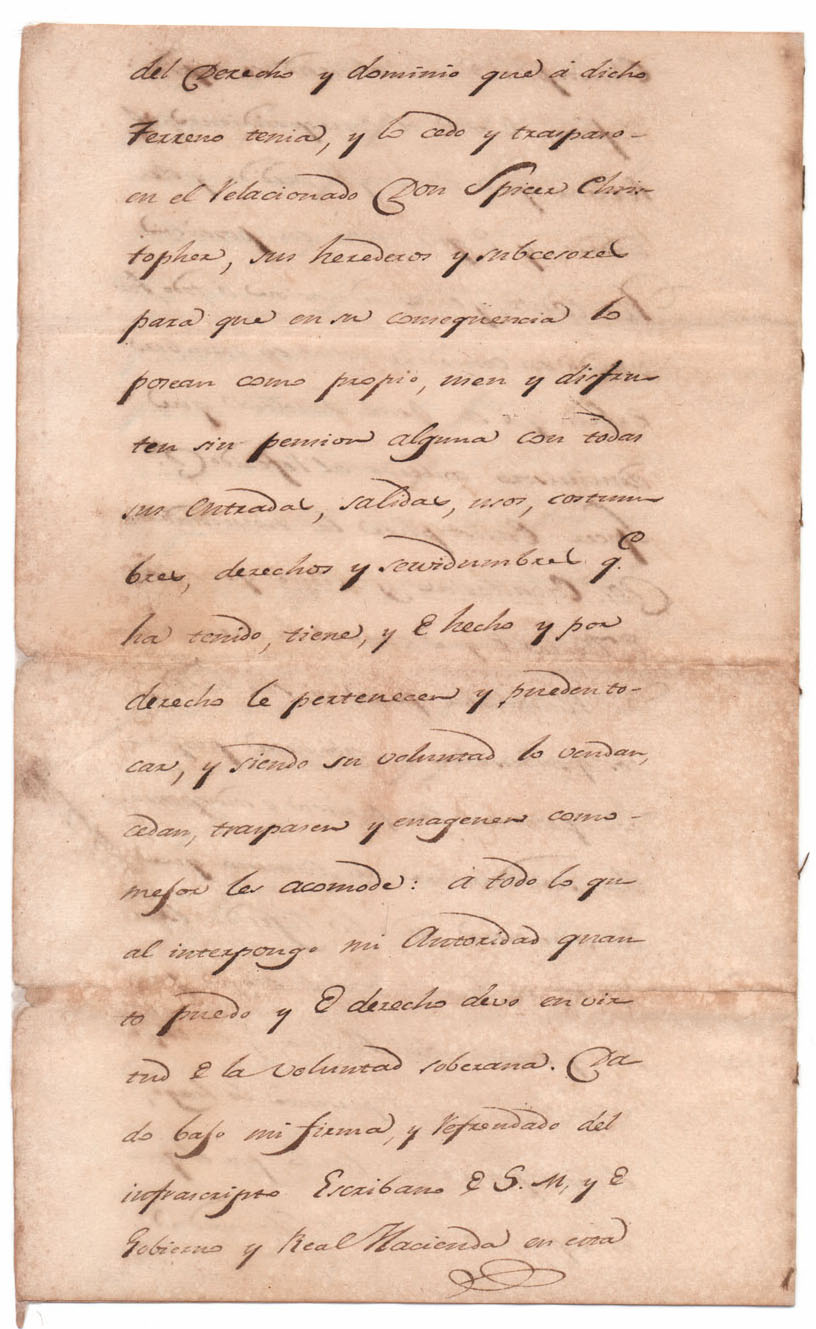 del Derecho y dominio que á dicho
Terreno tenia, y lo cedo y traspaso-
en el Relacionado Don Spicer Chris-
topher, sus herederos y subcesores
para que en su conseqüencia lo
posean como propio, usen y disfru-
ten sin pension alguna con todas
sus entradas, salidas, usos, costum-
bres, derechos y servidumbres q.e
ha tenido, tiene, y de hecho y por
derecho le pertenecen y pueden to-
car, y siendo su voluntad lo vendan,
cedan, traspasen y enagenen como-
mejor les acomode: á todo lo qu-
al interpongo mi Autoridad quan-
to puedo y de derecho devo en vir-
tud de la voluntad soberana. Da-
do bajo mi firma, y Refrendado del
infrascripto Escribano de S. M, y de
Gobierno y Real Hacienda en esta